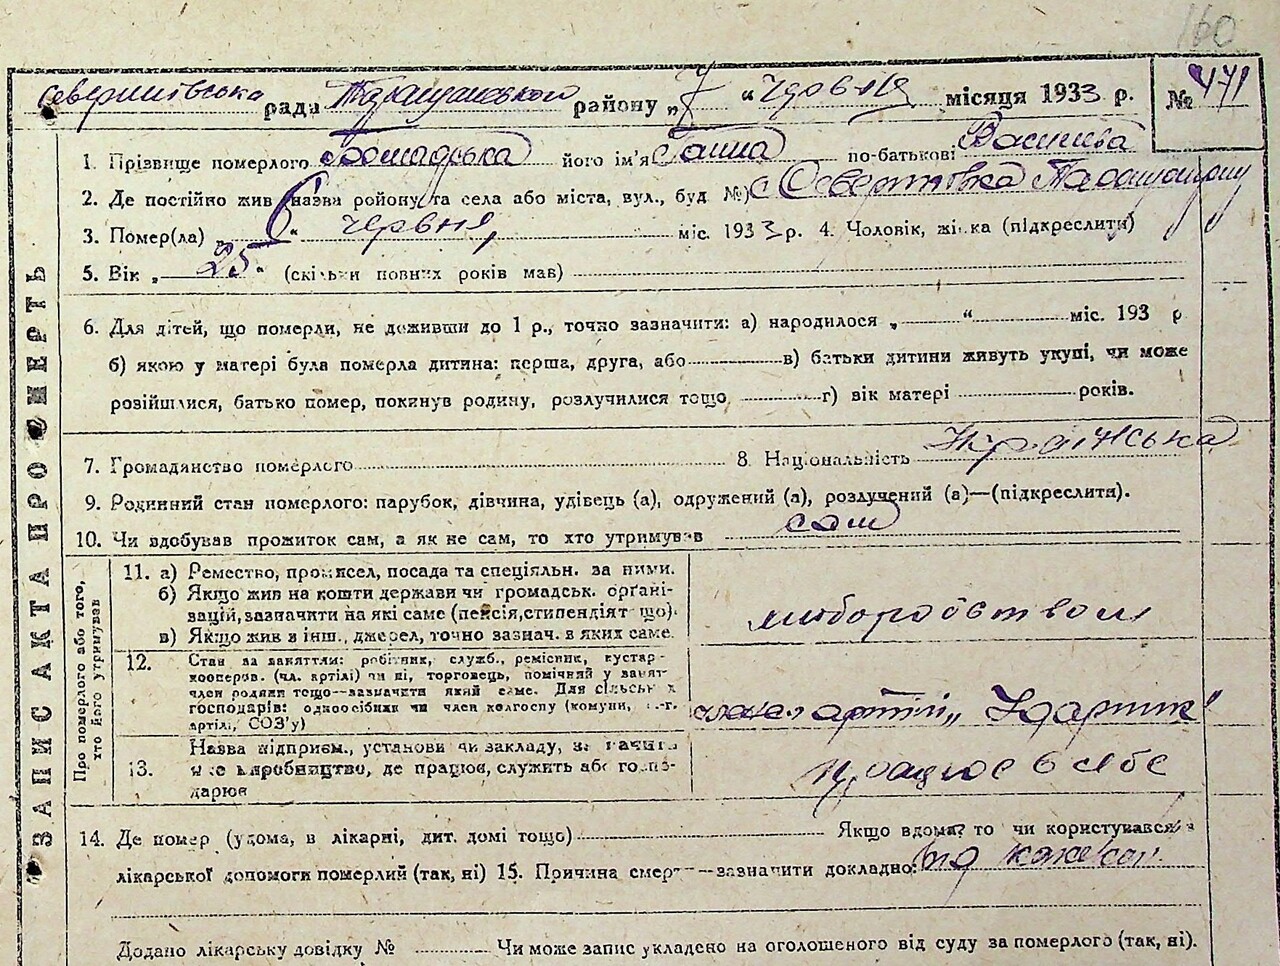 160
рада Таращанського району „7“ червня місяця 1933 р. № 471
1. Прізвище померлого його ім'я Ганна по-батькові
2. Де постійно жив (назва району та села або міста, вул., буд №) с
3. Помер(ла) „6“ червня, міс. 1933 р. 4. Чоловік, жінка (підкреслити)
5. Вік „25“ (скільки повних років мав)
6. Для дітей, що померли, не доживши до 1 р., точно зазначити: а) народилося „ “ міс. 193 р
б) якою у матері була померла дитина: перша, друга, або в) батьки дитини живуть укупі, чи може
розійшлися, батько помер, покинув родину, розлучилися тощо г) вік матері років.
7. Громадянство померлого 8. Національність Українська
9. Родинний стан померлого: парубок, дівчина, удівець (а), одружений (а), розлучений (а)—(підкреслити).
10. Чи здобував прожиток сам, а як не сам, то хто утримував сам
ЗАПИС АКТА ПРО СМЕРТЬ
Про померлого або того, хто його утримував
11. а) Ремество, промисел, посада та спеціяльн. за ними.
б) Якщо жив на кошти держави чи громадськ. орґані-
зацій, зазначити на які саме (пенсія, стипендіят що).
в) Якщо жив з інш., джерел, точно зазнач. в яких саме.
хліборобством
12. Стан за заняттям: робітник, служб., ремісник, кустар-
кооперов. (чл. артілі) чи ні, торговець, помічний у занят.
член родини тощо—зазначити який саме. Для сільськ х
господарів: одноосібник чи член колгоспу (комуни, с.-г.
артілі, СОЗ'у)
артілі „Ударник“
13. Назва підприєм., установи чи закладу, зазначит
яке виробництво, де працює, служить або госпо-
дарює
працює в себе
14. Де помер (удома, в лікарні, дит. домі тощо) Якщо вдома? то чи користувався
лікарської допомоги померлий (так, ні) 15. Причина смерти—зазначити докладно:
Додано лікарську довідку № Чи може запис укладено на оголошеного від суду за померлого (так, ні).